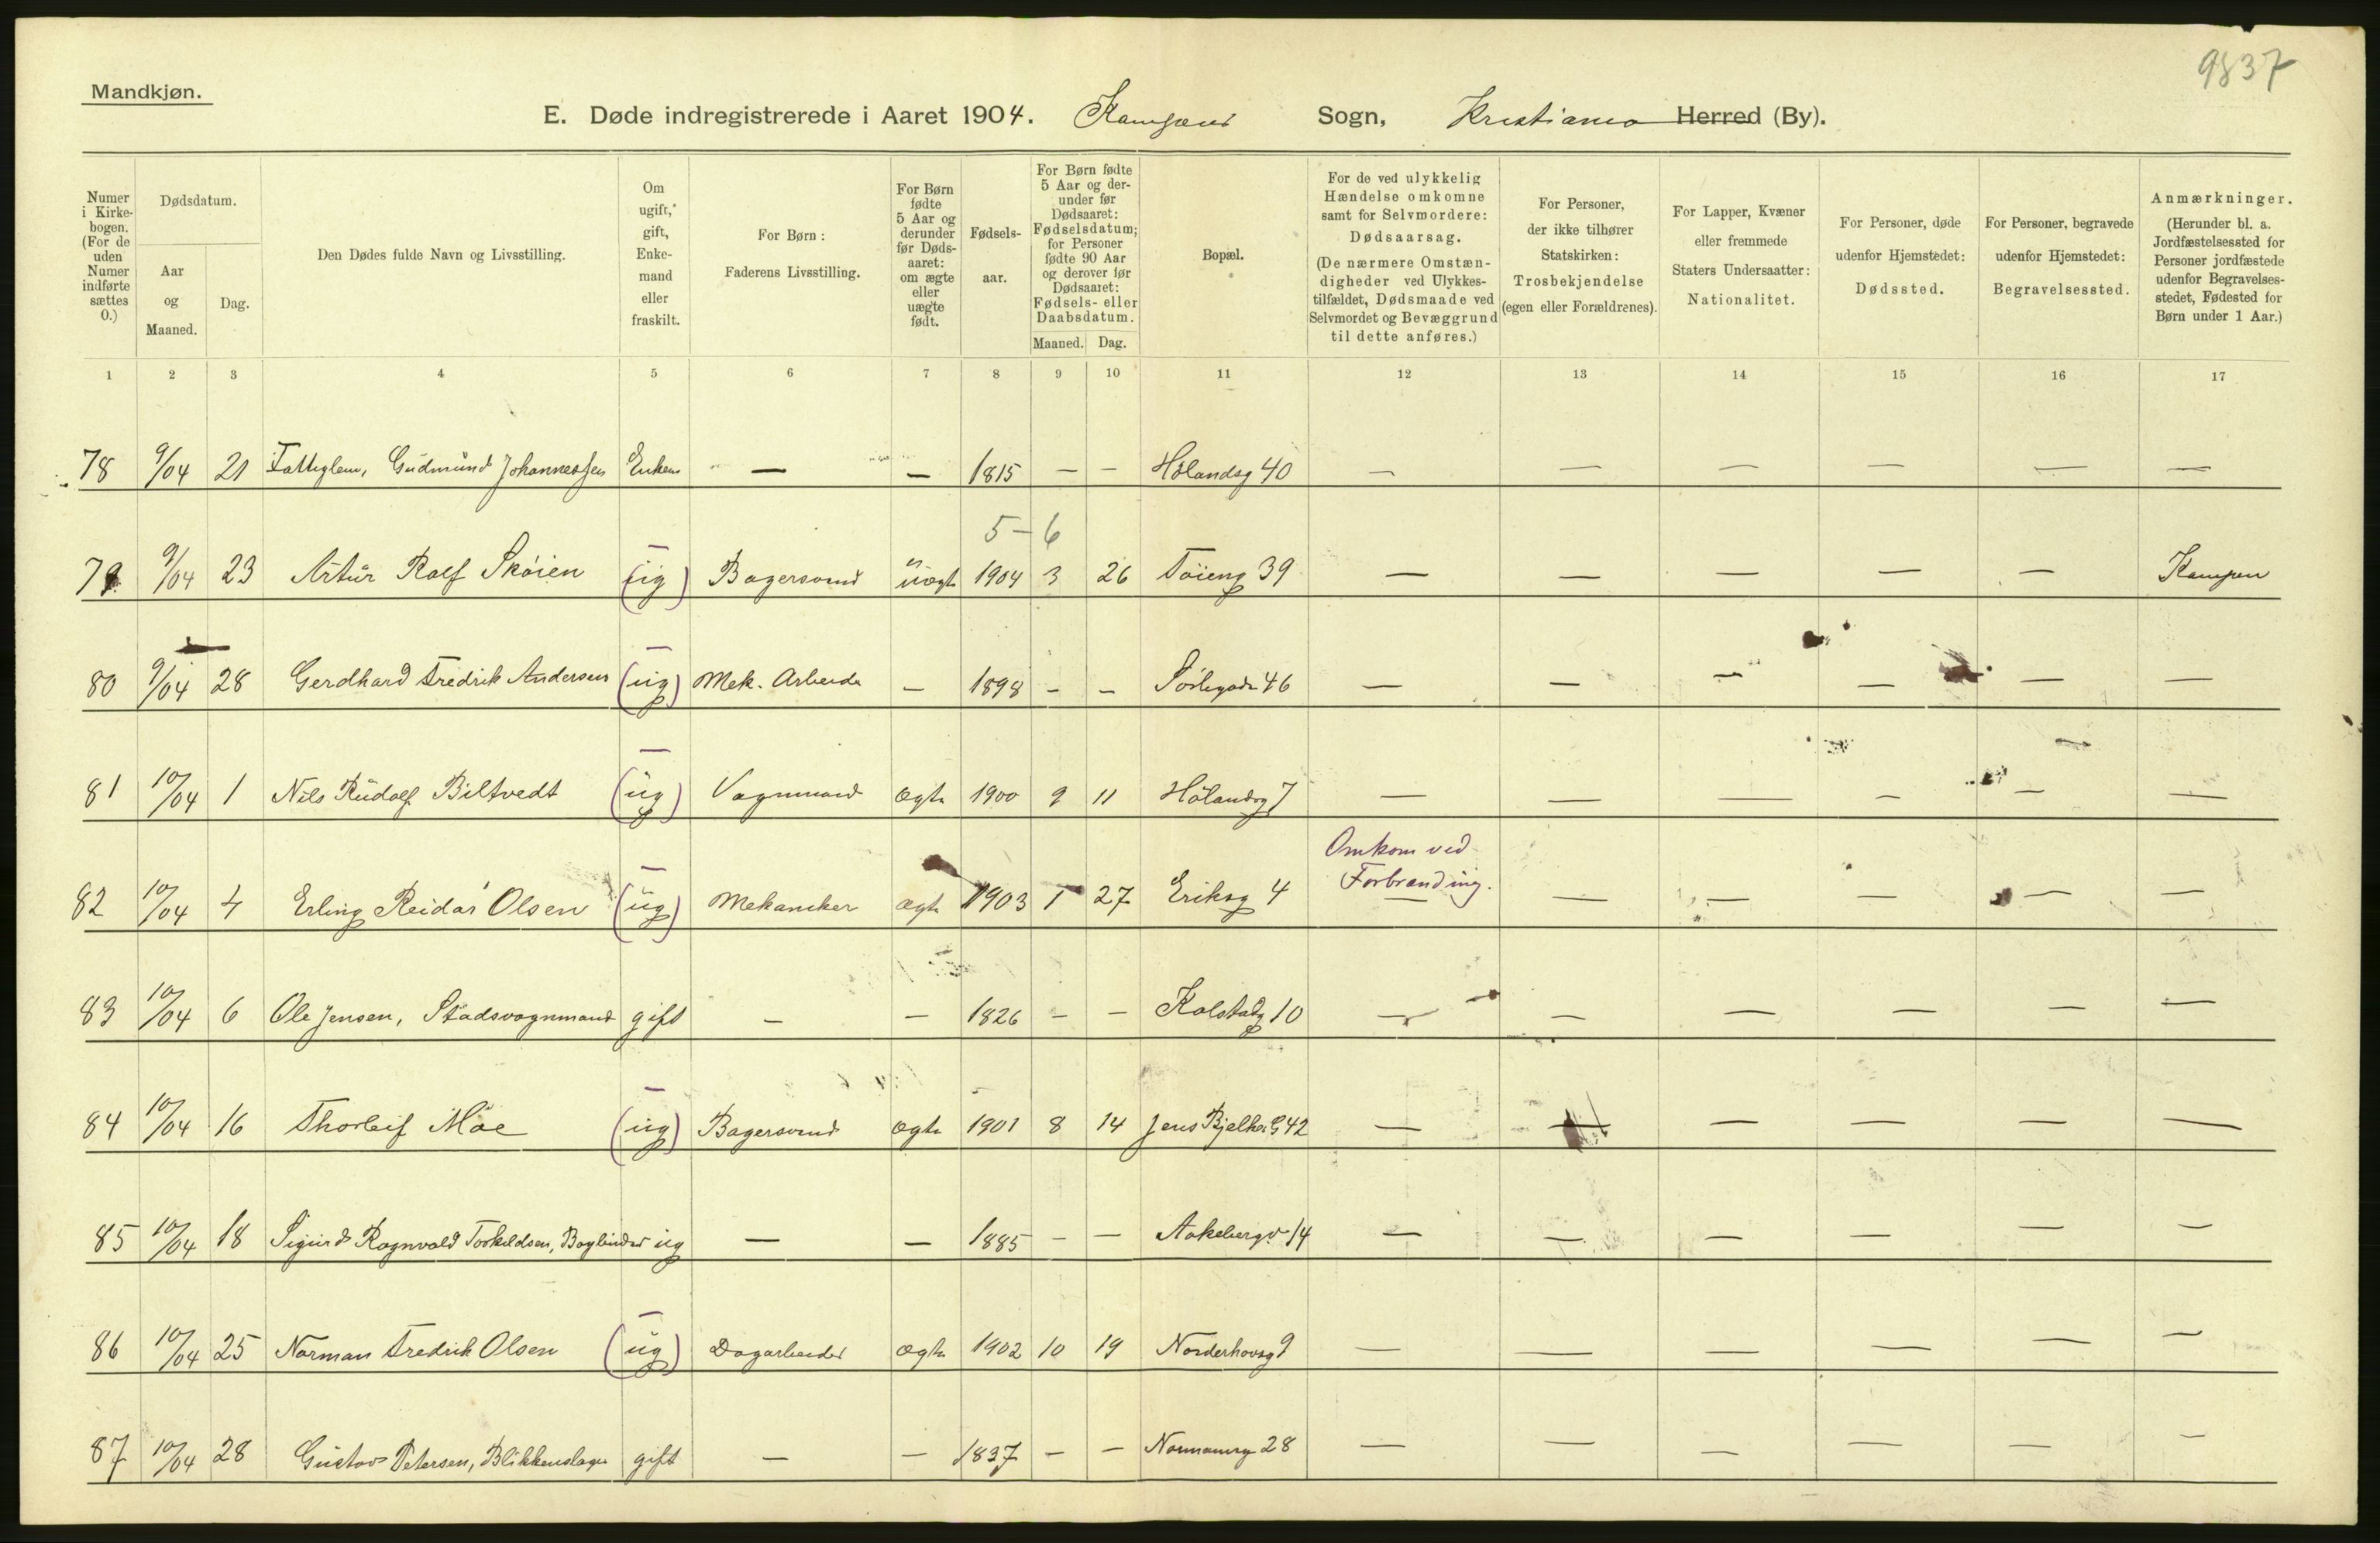 9837
Mandkjøn.
E. Døde indregistrerede i Aaret 1904. Kampens Sogn, Kristiania Herred (By).
Numer i Kirkebogen. (For de uden Numer indførte sættes 0.)
Dødsdatum.
Aar og Maaned.
Dag.
Den Dødes fulde Navn og Livsstilling.
Om ugift, gift, Enkemand eller fraskilt.
For Børn: Faderens Livsstilling.
For Børn fødte 5 Aar og derunder før Dødsaaret: om ægte eller uægte født.
Fødselsaar.
For Børn fødte 5 Aar og derunder før Dødsaaret: Fødselsdatum; for Personer fødte 90 Aar og derover før Dødsaaret: Fødsels- eller Daabsdatum.
Maaned. Dag.
Bopæl.
For de ved ulykkelig Hændelse omkomne samt for Selvmordere: Dødsaarsag. (De nærmere Omstændigheder ved Ulykkestilfældet, Dødsmaade ved Selvmordet og Bevæggrund til dette anføres.)
For Personer, der ikke tilhører Statskirken: Trosbekjendelse (egen eller Forældrenes).
For Lapper, Kvæner eller fremmede Staters Undersaatter: Nationalitet.
For Personer, døde udenfor Hjemstedet: Dødssted.
For Personer, begravede udenfor Hjemstedet: Begravelsessted.
Anmærkninger. (Herunder bl. a. Jordfæstelsessted for Personer jordfæstede udenfor Begravelsesstedet, Fødested for Børn under 1 Aar.)
1 2 3 4 5 6 7 8 9 10 11 12 13 14 15 16 17
78 9/04 21 Fattiglem, Gudmund Johannessen Enkem — — 1815 — — Hölandsg 40 — — — — — —
5-6
79 9/04 23 Artur Rolf Sköien (ug) Bagersvend uægte 1904 3 26 Töieng 39 — — — — — Kampen
80 9/04 28 Gerdhard Fredrik Andersen (ug) Mek. Arbeide — 1898 — — Sörligade 46 — — — — — —
81 10/04 1 Nils Rudolf Biltvedt (ug) Vognmand ægte 1900 9 11 Hölandsg 7 — — — — — —
Omkom ved
Forbrænding.
82 10/04 4 Erling Reidar Olsen (ug) Mekaniker ægte 1903 1 27 Eriksg 4 — — — — — —
83 10/04 6 Ole Jensen, Stadsvognmand gift — — 1826 — — Kolstadg 10 — — — — — —
84 10/04 16 Thorleif Möe (ug) Bagersvend ægte 1901 8 14 Jens Bjelkes G 42 — — — — — —
85 10/04 18 Sigurd Rognvald Torkildsen, Bogbinder ug — — 1885 — — Aakebergv 14 — — — — — —
86 10/04 25 Norman Fredrik Olsen (ug) Dagarbeider ægte 1902 10 19 Norderhovsg 9 — — — — — —
87 10/04 28 Gustav Petersen, Blikkenslager gift — — 1837 — — Normannsg 28 — — — — — —